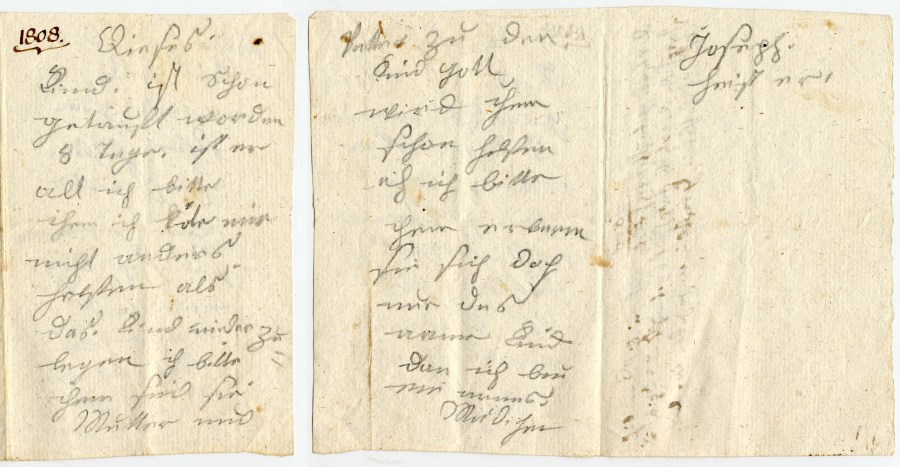 1808.
Dieses.
Kind. ist Schon
getauft worden
8 Tage. ist er
alt ich bitte
ihen ich köte mir
nicht anders
helfen als
das. Kind nieder zu
legen ich bitte
ihen seid sie
Mutter und
Vatter zu den
Kind gott
wird ihen
schon helfen
ich bitte
ihen erbarm
sie sich doch
nur das
arme Kind
dan ich bin
ein armes
Mädchen
Joseph.
heist er,